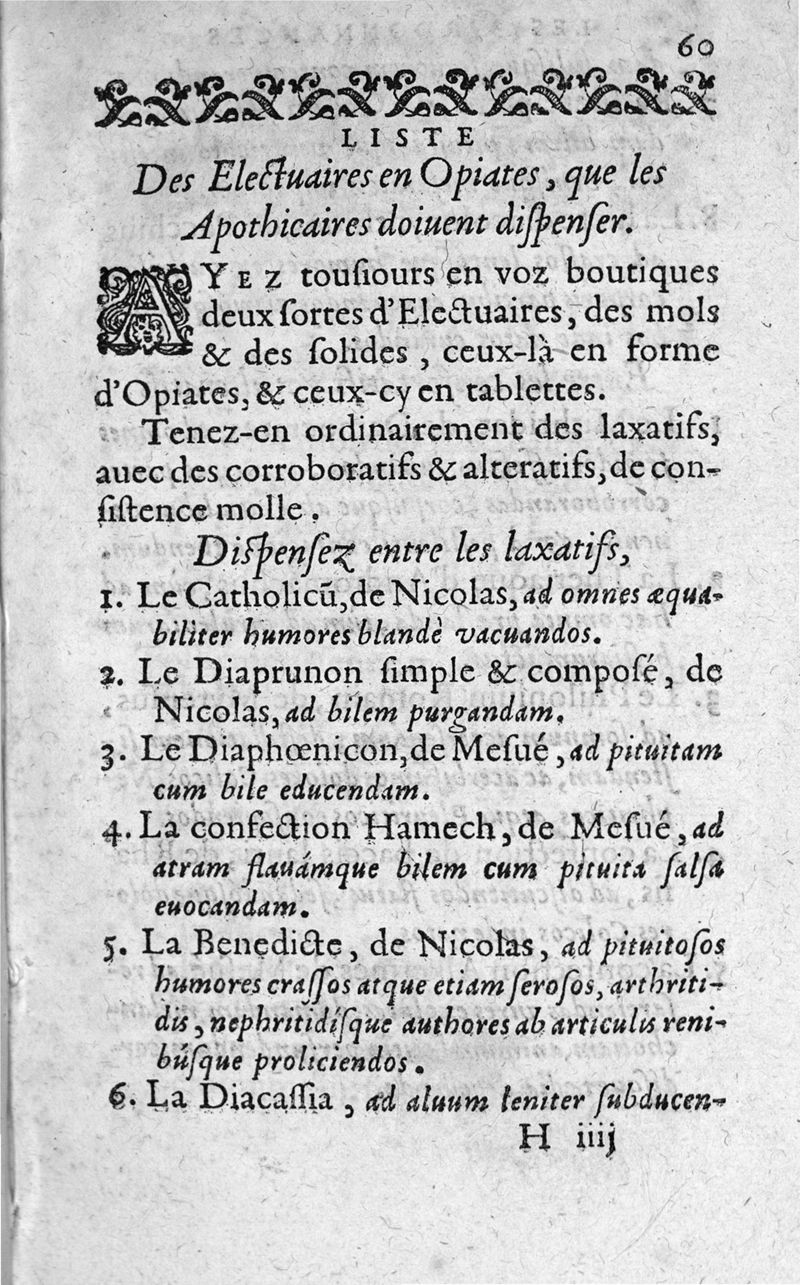 60
LISTE
Des Electuaires en Opiates, que les
Apothicaires doiuent dispenſer.
AYEZ touſiours en voz boutiques
deux ſortes d'Electuaires, des mols
& des ſolides, ceux-là en forme
d'Opiates, & ceux-cy en tablettes.
Tenez-en ordinairement des laxatifs,
auec des corroboratifs & alteratifs, de con-
ſiſtence molle.
Diſpenſez entre les laxatifs,
1. Le Catholicū, de Nicolas, ad omnes æqua-
biliter humores blandè vacuandos.
2. Le Diaprunon ſimple & compoſé, de
Nicolas, ad bilem purgandam.
3. Le Diaphœnicon, de Meſué, ad pituitam
cum bile educendam.
4. La confection Hamech, de Meſué, ad
atram flauámque bilem cum pituita ſalſa
euocandam.
5. La Benedicte, de Nicolas, ad pituitoſos
humores craſſos atque etiam ſeroſos, arthriti-
dis, nephritidíſque authores ab articulis reni-
búſque proliciendos.
6. La Diacaſſia, ad aluum leniter ſubducen-
H iiij